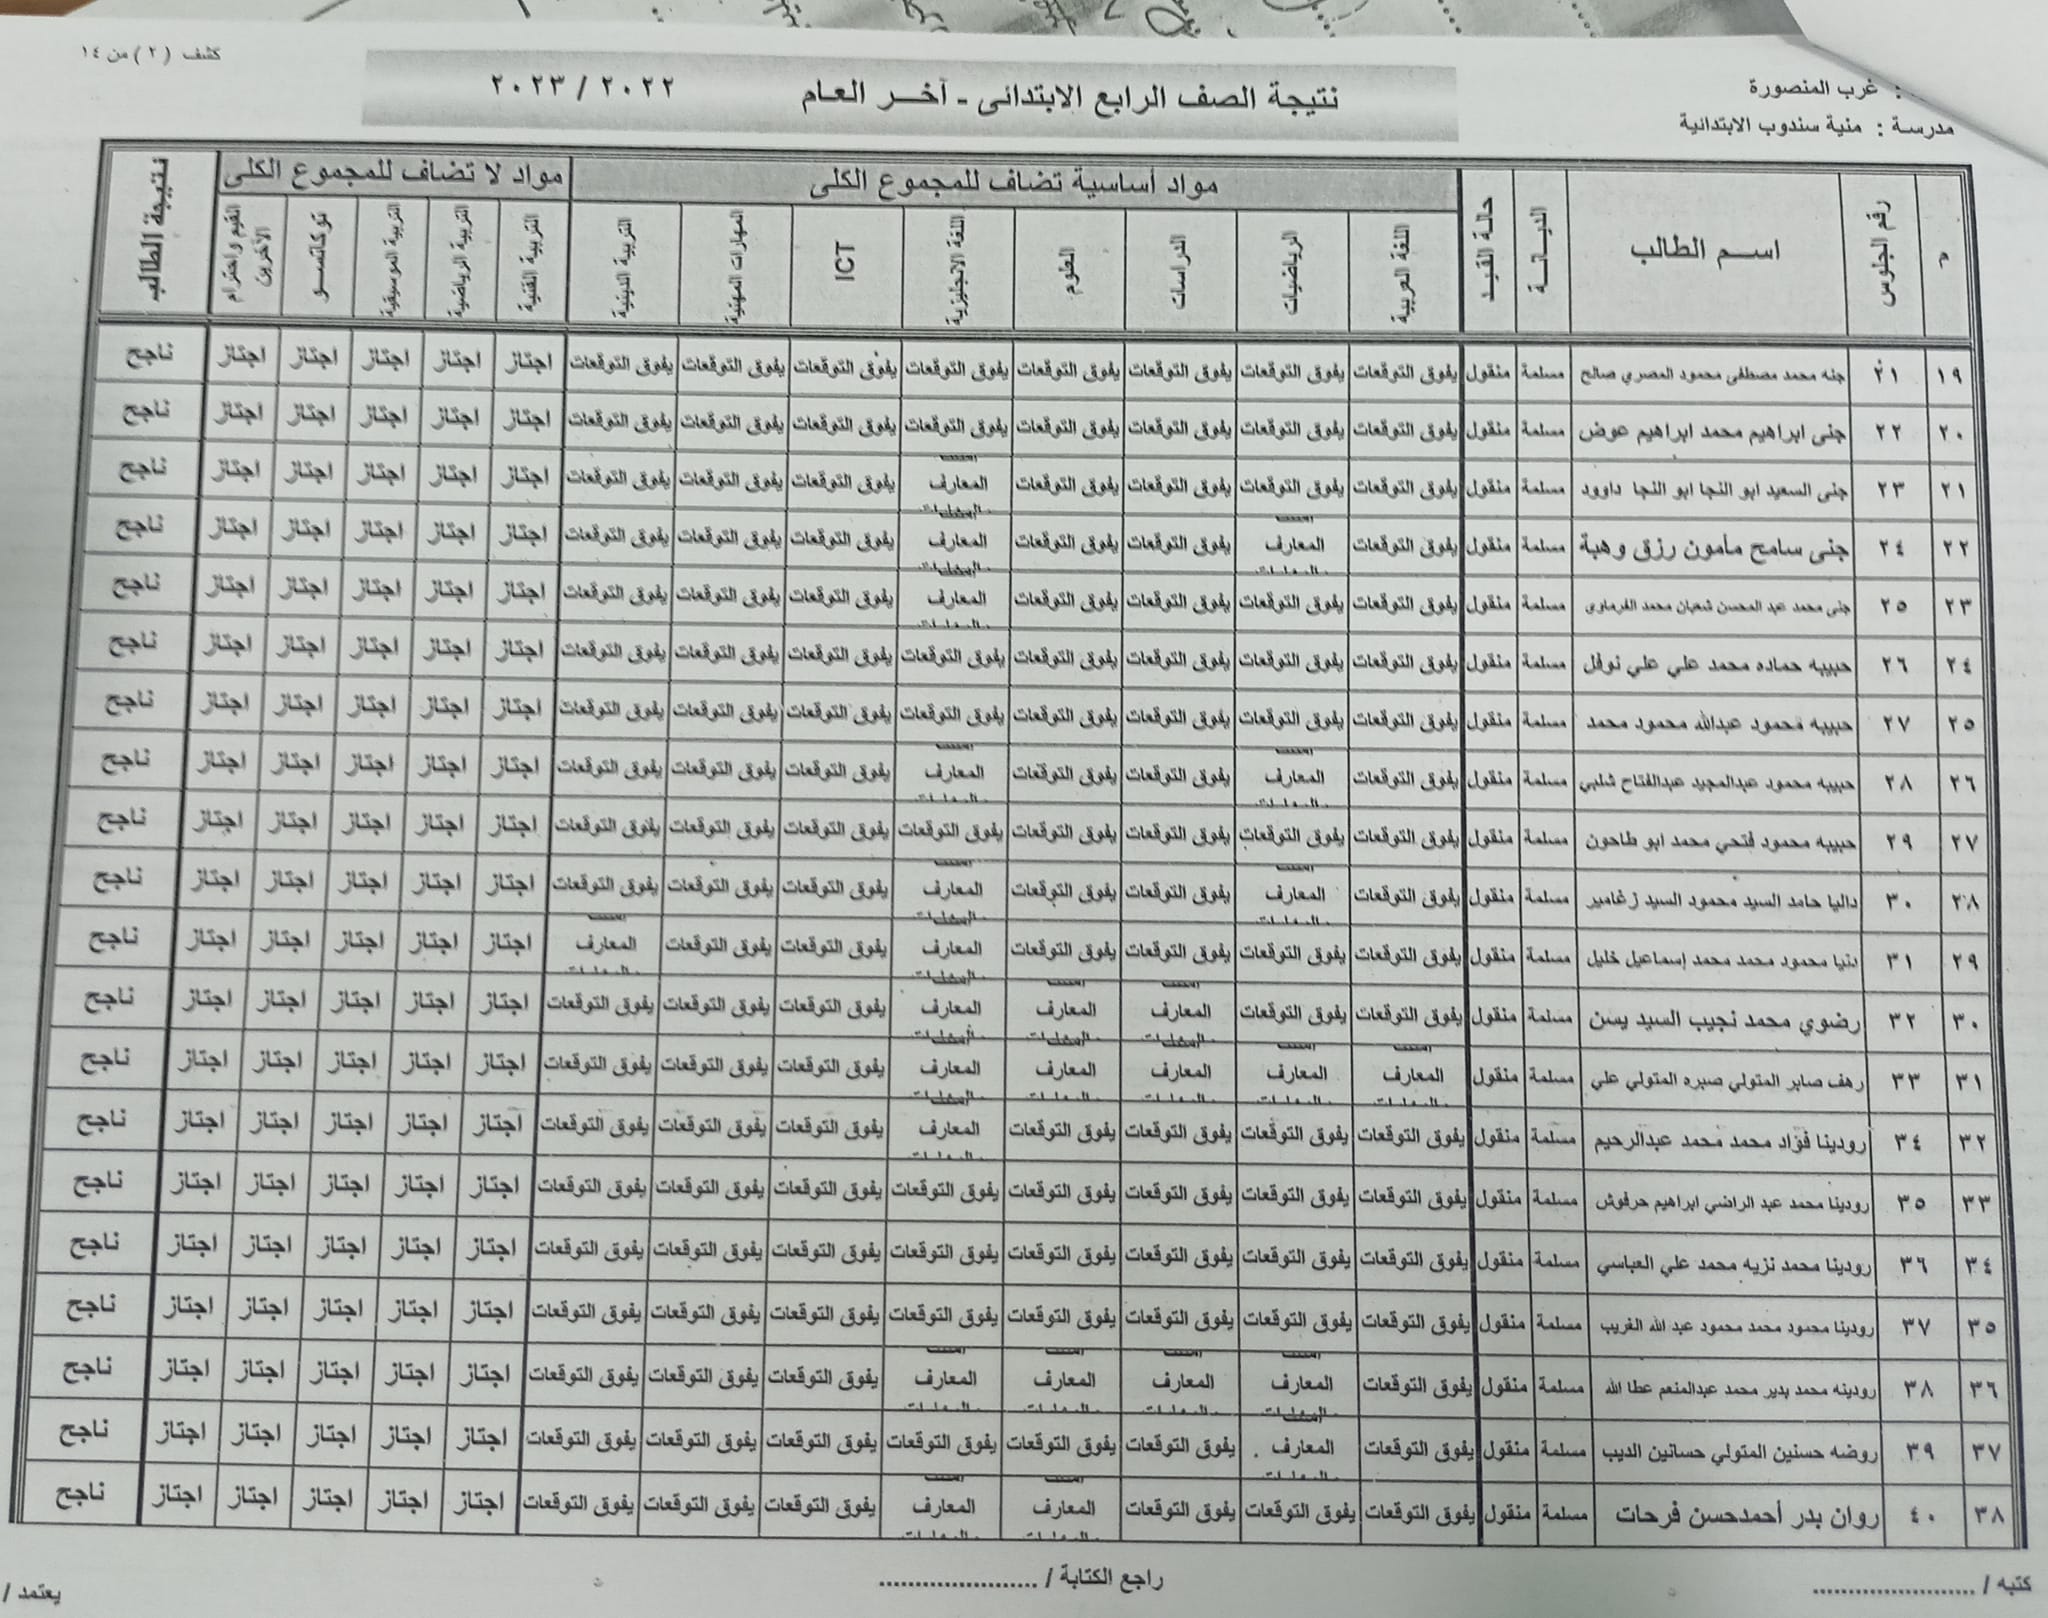 كشف ( ٢ ) من ١٤
: غرب المنصورة
مدرسة : منية سندوب الابتدائية
نتيجة الصف الرابع الابتدائى - آخـر العـام ٢٠٢٢ / ٢٠٢٣
م رقم الجلوس اســم الطالب الديـانـة حالة القيـد مواد أساسية تضاف للمجموع الكلى مواد لا تضاف للمجموع الكلى نتيجة الطالب
اللغة العربية الرياضيات الدراسات العلوم اللغة الانجليزية ICT المهارات المهنية التربية الدينية التربية الفنية التربية الرياضية التربية الموسيقية توكاتسـو القيم واحترام الآخرين
١٩ ٢١ جنه محمد مصطفى محمود المصري صالح مسلمة منقول يفوق التوقعات يفوق التوقعات يفوق التوقعات يفوق التوقعات يفوق التوقعات يفوق التوقعات يفوق التوقعات يفوق التوقعات اجتاز اجتاز اجتاز اجتاز اجتاز ناجح
٢٠ ٢٢ جنى ابراهيم محمد ابراهيم عوض مسلمة منقول يفوق التوقعات يفوق التوقعات يفوق التوقعات يفوق التوقعات يفوق التوقعات يفوق التوقعات يفوق التوقعات يفوق التوقعات اجتاز اجتاز اجتاز اجتاز اجتاز ناجح
٢١ ٢٣ جنى السعيد ابو النجا ابو النجا داوود مسلمة منقول يفوق التوقعات يفوق التوقعات يفوق التوقعات يفوق التوقعات المعارف يفوق التوقعات يفوق التوقعات يفوق التوقعات اجتاز اجتاز اجتاز اجتاز اجتاز ناجح
٢٢ ٢٤ جنى سامح مأمون رزق وهبة مسلمة منقول يفوق التوقعات المعارف يفوق التوقعات يفوق التوقعات المعارف يفوق التوقعات يفوق التوقعات يفوق التوقعات اجتاز اجتاز اجتاز اجتاز اجتاز ناجح
٢٣ ٢٥ جنى محمد عبد المحسن شعبان محمد الفرماوى مسلمة منقول يفوق التوقعات يفوق التوقعات يفوق التوقعات يفوق التوقعات المعارف يفوق التوقعات يفوق التوقعات يفوق التوقعات اجتاز اجتاز اجتاز اجتاز اجتاز ناجح
٢٤ ٢٦ حبيبه حماده محمد علي علي نوفل مسلمة منقول يفوق التوقعات يفوق التوقعات يفوق التوقعات يفوق التوقعات يفوق التوقعات يفوق التوقعات يفوق التوقعات يفوق التوقعات اجتاز اجتاز اجتاز اجتاز اجتاز ناجح
٢٥ ٢٧ حبيبه محمود عبدالله محمود محمد مسلمة منقول يفوق التوقعات يفوق التوقعات يفوق التوقعات يفوق التوقعات يفوق التوقعات يفوق التوقعات يفوق التوقعات يفوق التوقعات اجتاز اجتاز اجتاز اجتاز اجتاز ناجح
٢٦ ٢٨ حبيبه محمود عبدالمجيد عبدالفتاح شلبي مسلمة منقول يفوق التوقعات المعارف يفوق التوقعات يفوق التوقعات المعارف يفوق التوقعات يفوق التوقعات يفوق التوقعات اجتاز اجتاز اجتاز اجتاز اجتاز ناجح
٢٧ ٢٩ حبيبه محمود فتحي محمد ابو طاحون مسلمة منقول يفوق التوقعات يفوق التوقعات يفوق التوقعات يفوق التوقعات يفوق التوقعات يفوق التوقعات يفوق التوقعات يفوق التوقعات اجتاز اجتاز اجتاز اجتاز اجتاز ناجح
٢٨ ٣٠ داليا حامد السيد محمود السيد زغامير مسلمة منقول يفوق التوقعات المعارف يفوق التوقعات يفوق التوقعات المعارف يفوق التوقعات يفوق التوقعات يفوق التوقعات اجتاز اجتاز اجتاز اجتاز اجتاز ناجح
٢٩ ٣١ دنيا محمود محمد محمد إسماعيل خليل مسلمة منقول يفوق التوقعات يفوق التوقعات يفوق التوقعات يفوق التوقعات المعارف يفوق التوقعات يفوق التوقعات المعارف اجتاز اجتاز اجتاز اجتاز اجتاز ناجح
٣٠ ٣٢ رضوي محمد نجيب السيد يسن مسلمة منقول يفوق التوقعات يفوق التوقعات المعارف المعارف المعارف يفوق التوقعات يفوق التوقعات يفوق التوقعات اجتاز اجتاز اجتاز اجتاز اجتاز ناجح
٣١ ٣٣ رهف صابر المتولي صبره المتولي علي مسلمة منقول المعارف المعارف المعارف المعارف المعارف يفوق التوقعات يفوق التوقعات يفوق التوقعات اجتاز اجتاز اجتاز اجتاز اجتاز ناجح
٣٢ ٣٤ رودينا فؤاد محمد محمد عبدالرحيم مسلمة منقول يفوق التوقعات يفوق التوقعات يفوق التوقعات يفوق التوقعات المعارف يفوق التوقعات يفوق التوقعات يفوق التوقعات اجتاز اجتاز اجتاز اجتاز اجتاز ناجح
٣٣ ٣٥ رودينا محمد عبد الراضي ابراهيم حرفوش مسلمة منقول يفوق التوقعات يفوق التوقعات يفوق التوقعات يفوق التوقعات يفوق التوقعات يفوق التوقعات يفوق التوقعات يفوق التوقعات اجتاز اجتاز اجتاز اجتاز اجتاز ناجح
٣٤ ٣٦ رودينا محمد نزيه محمد علي العباسي مسلمة منقول يفوق التوقعات يفوق التوقعات يفوق التوقعات يفوق التوقعات يفوق التوقعات يفوق التوقعات يفوق التوقعات يفوق التوقعات اجتاز اجتاز اجتاز اجتاز اجتاز ناجح
٣٥ ٣٧ رودينا محمود محمد محمود عبد الله الغريب مسلمة منقول يفوق التوقعات يفوق التوقعات يفوق التوقعات يفوق التوقعات يفوق التوقعات يفوق التوقعات يفوق التوقعات يفوق التوقعات اجتاز اجتاز اجتاز اجتاز اجتاز ناجح
٣٦ ٣٨ رودينه محمد بدير محمد عبدالمنعم عطا الله مسلمة منقول يفوق التوقعات المعارف المعارف المعارف المعارف يفوق التوقعات يفوق التوقعات يفوق التوقعات اجتاز اجتاز اجتاز اجتاز اجتاز ناجح
٣٧ ٣٩ روضه حسنين المتولي حسانين الديب مسلمة منقول يفوق التوقعات المعارف يفوق التوقعات يفوق التوقعات يفوق التوقعات يفوق التوقعات يفوق التوقعات يفوق التوقعات اجتاز اجتاز اجتاز اجتاز اجتاز ناجح
٣٨ ٤٠ روان بدر أحمدحسن فرحات مسلمة منقول يفوق التوقعات يفوق التوقعات يفوق التوقعات المعارف المعارف يفوق التوقعات يفوق التوقعات يفوق التوقعات اجتاز اجتاز اجتاز اجتاز اجتاز ناجح
كتبه / ...................... راجع الكتابة / ...................... يعتمد /